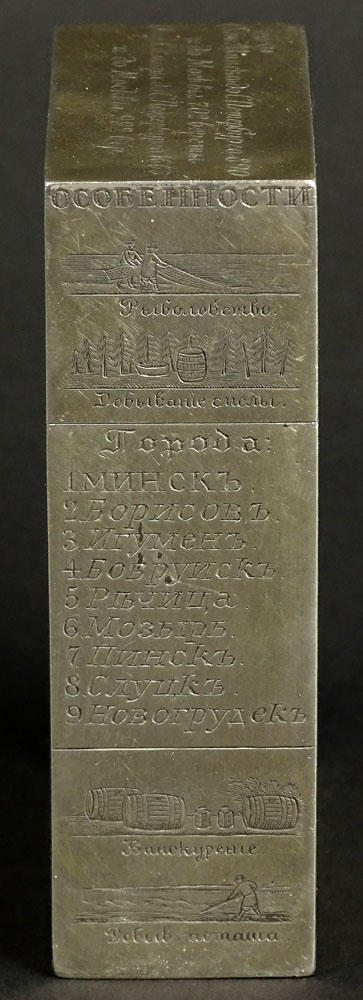 до Москвы 712 верстъ
ОСОБЕННОСТИ
Рыболовство.
Добываніе смолы.
Города:
1 МИНСКЪ.
2. Борисовъ.
3. Игуменъ.
4. Бобруискъ.
5 Рѣчица.
6 Мозырь.
7 Пинскъ.
8. Слуцкъ.
9 Новогрудекъ
Винокуреніе
Добыв. поташа